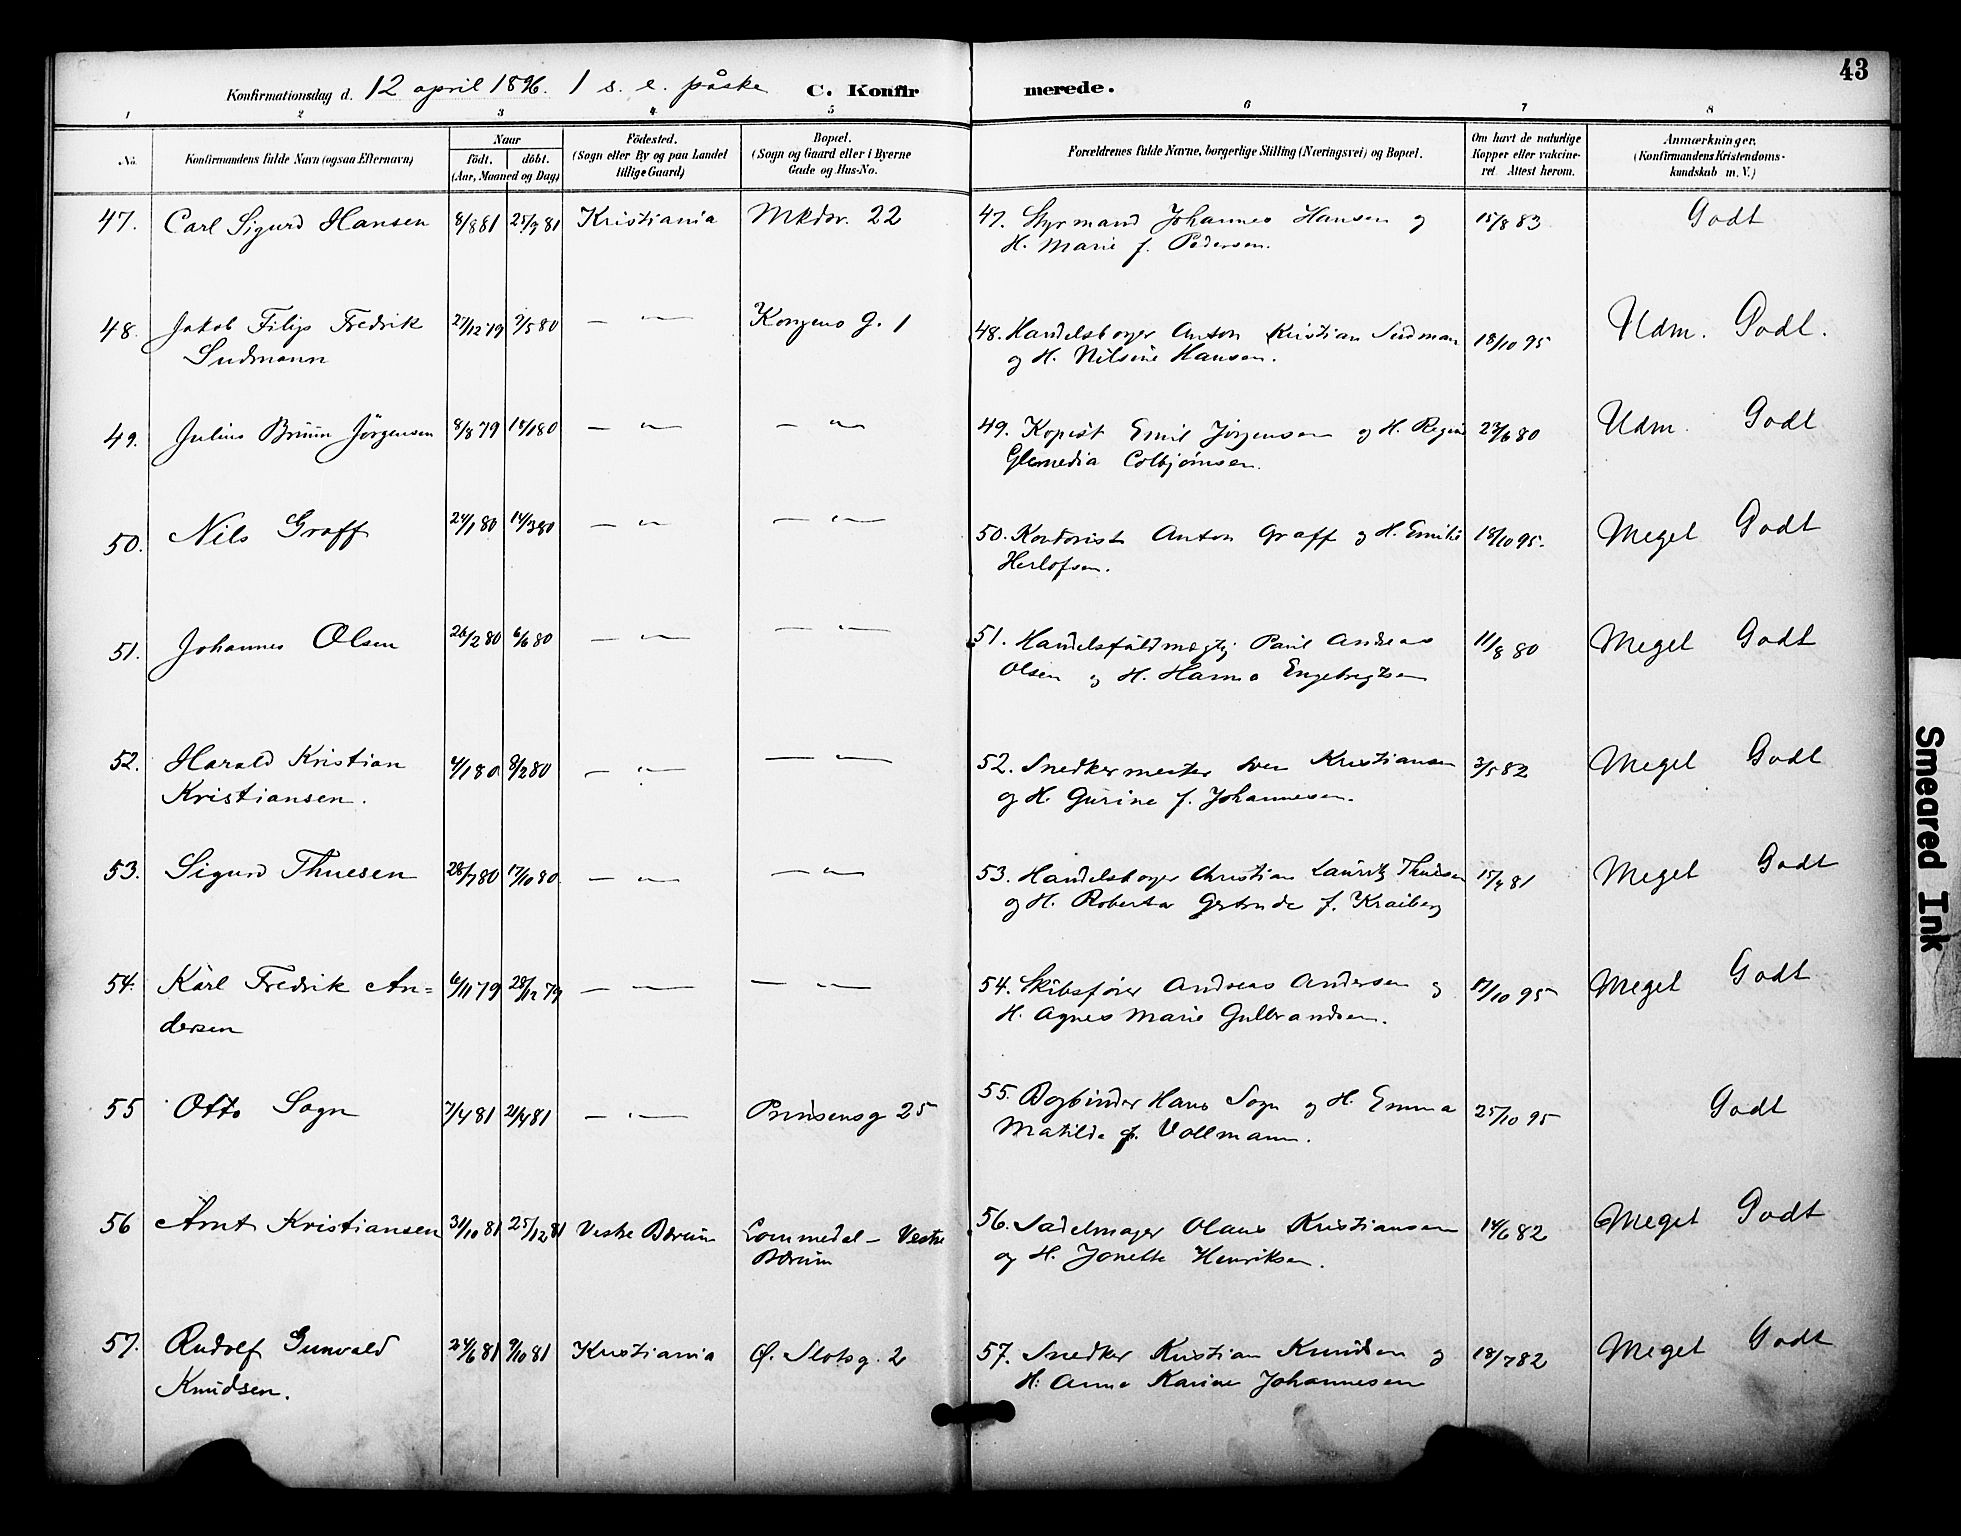 43
Konfirmationsdag d. 12 april 1896. 1 s. e. påske C. Konfirmerede.
1 2 3 4 5 6 7 8
No. Konfirmandens fulde Navn (ogsaa Efternavn)
Naar
födt. döbt.
(Aar, Maaned og Dag)
Födested.
(Sogn eller By og paa Landet
tillige Gaard)
Bopæl.
(Sogn og Gaard eller i Byerne
Gade og Hus-No.
Forældrenes fulde Navne, borgerlige Stilling (Næringsvei) og Bopæl.
Om havt de naturlige
Kopper eller vakcine-
ret. Attest herom.
Anmærkninger.
(Konfirmandens Kristendoms-
kundskab m. V.)
47. Carl Sigurd Hansen 8/8 81 25/9 81 Kristiania Mkdsv. 22 47. Styrmand Johannes Hansen og 15/8 83 Godt
H. Marie f. Pedersen.
48. Jakob Filip Fredrik 27/12 79 9/5 80 — " — Kongens g. 1 48. Handelsborger Anton Kristian Sudman 18/10 95 Udm. Godt.
Sudmann og H. Nilsine Hansen.
49. Julius Bruun Jörgensen 8/8 79 18/1 80 — " — — " — 49. Kopist Emil Jörgensen og H. Regine 23/6 80 Udm. Godt
Colbjörnsen.
50. Nils Graff 24/1 80 14/3 80 — " — — " — 50. Kontorist Anton Graff og H. Emilie 18/10 95. Meget Godt
Herlofsen.
51. Johannes Olsen 26/2 80 6/6 80 — " — — " — 51. Handelsfuldmægtig Paul Andreas 11/8 80 Meget Godt
Olsen og H. Hanna Engebregtsen
52. Harald Kristian 4/1 80 8/2 80 — " — — " — 52. Snedkermester Sven Kristiansen 3/5 82 Meget Godt
Kristiansen. og H. Gurine f. Johannesen.
53. Sigurd Thuesen 28/7 80 17/10 80 — " — — " — 53. Handelsborger Christian Lauritz Thuesen 15/9 81 Meget Godt
og H. Roberta Gertrude f. Kraiberg
54. Karl Fredrik An= 6/11 79 28/12 79 — " — — " — 54. Skibsförer Andreas Andersen og 17/10 95 Meget Godt
dersen H. Agnes Marie Gulbrandsen.
55 Otto Sogn 7/4 81 21/4 81 — " — Prinsensg 25 55. Bogbinder Hans Sogn og H. Emma 25/10 95 Godt
Matilde f. Vollmann.
56 Arnt Kristiansen 31/10 81 25/12 81 Vestre Bærum Lommedal – Vestre 56. Sadelmager Olaus Kristiansen 14/6 82 Meget Godt
Bærum og H. Jonette Henriksen.
57. Rudolf Gunvald 24/6 81 9/10 81 Kristiania Ø. Slotsg. 2 57. Snedker Kristian Knudsen og 18/7 82 Meget Godt
Knudsen. H: Anna Karine Johannesen
Smeared Ink